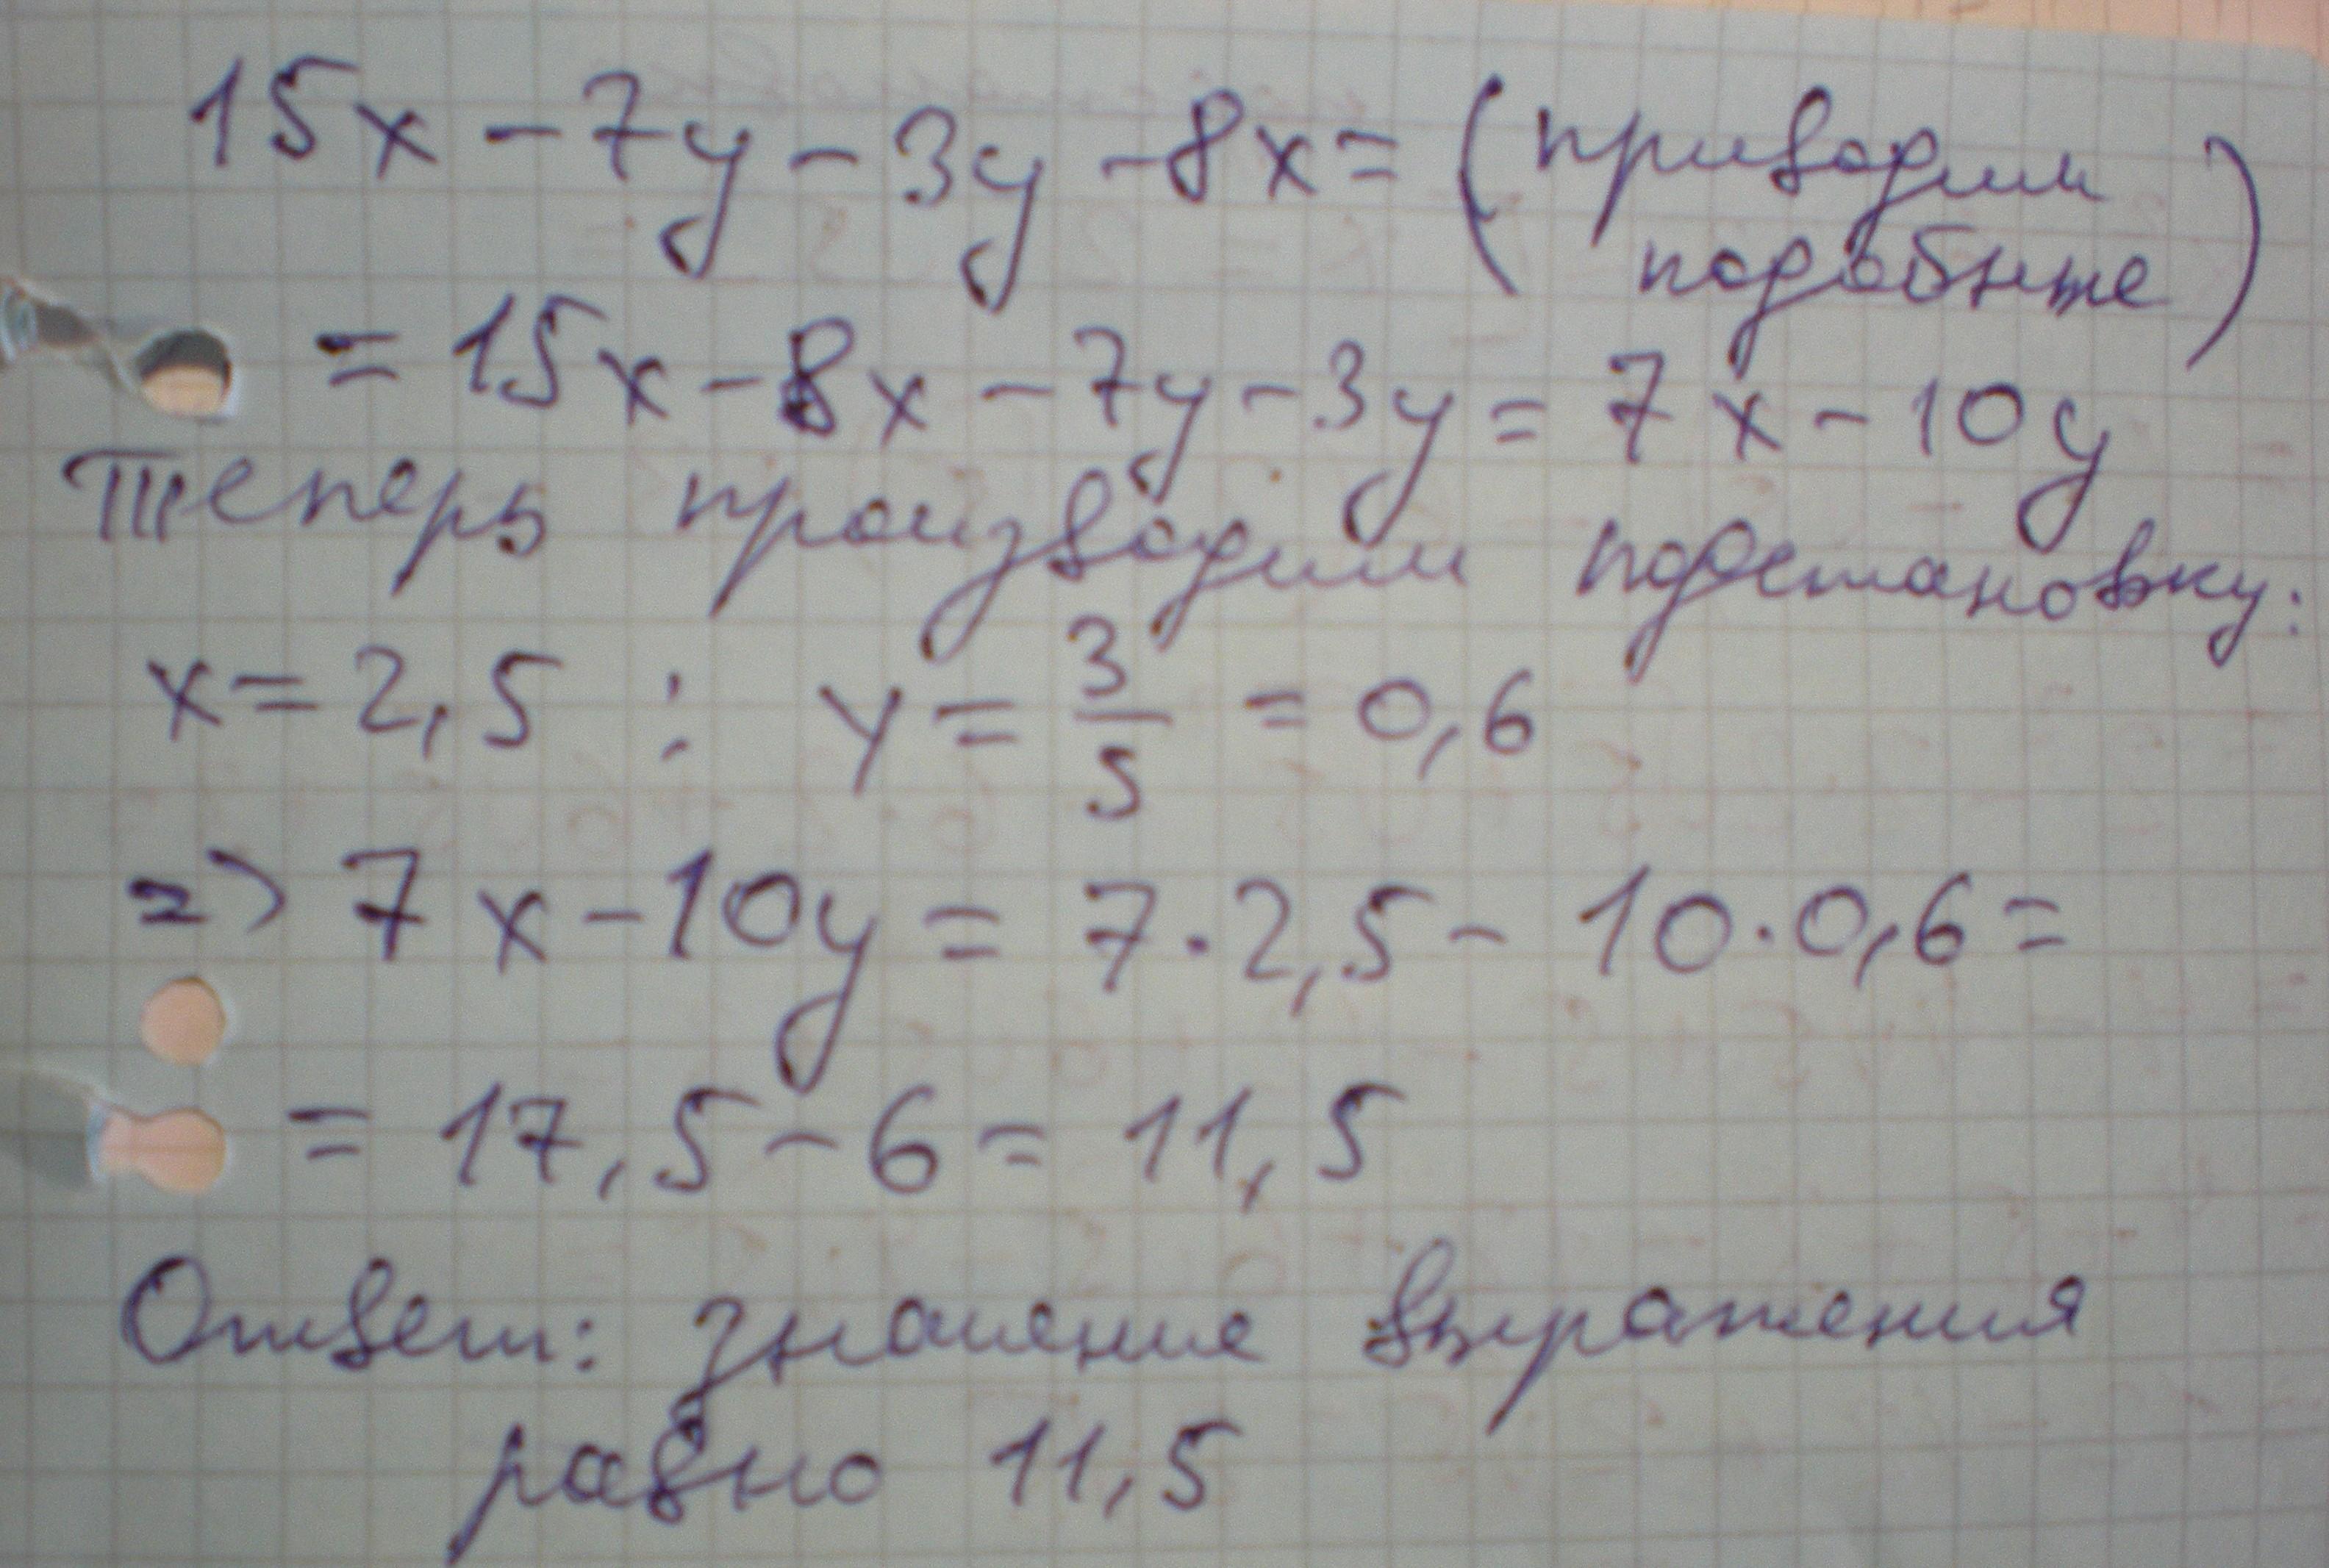 15x - 7y - 3y - 8x = (приводим
подобные)
= 15x - 8x - 7y - 3y = 7x - 10y
Теперь производим подстановку:
x = 2,5 ; y = 3/5 = 0,6
=> 7x - 10y = 7·2,5 - 10·0,6 =
= 17,5 - 6 = 11,5
Ответ: значение выражения
равно 11,5